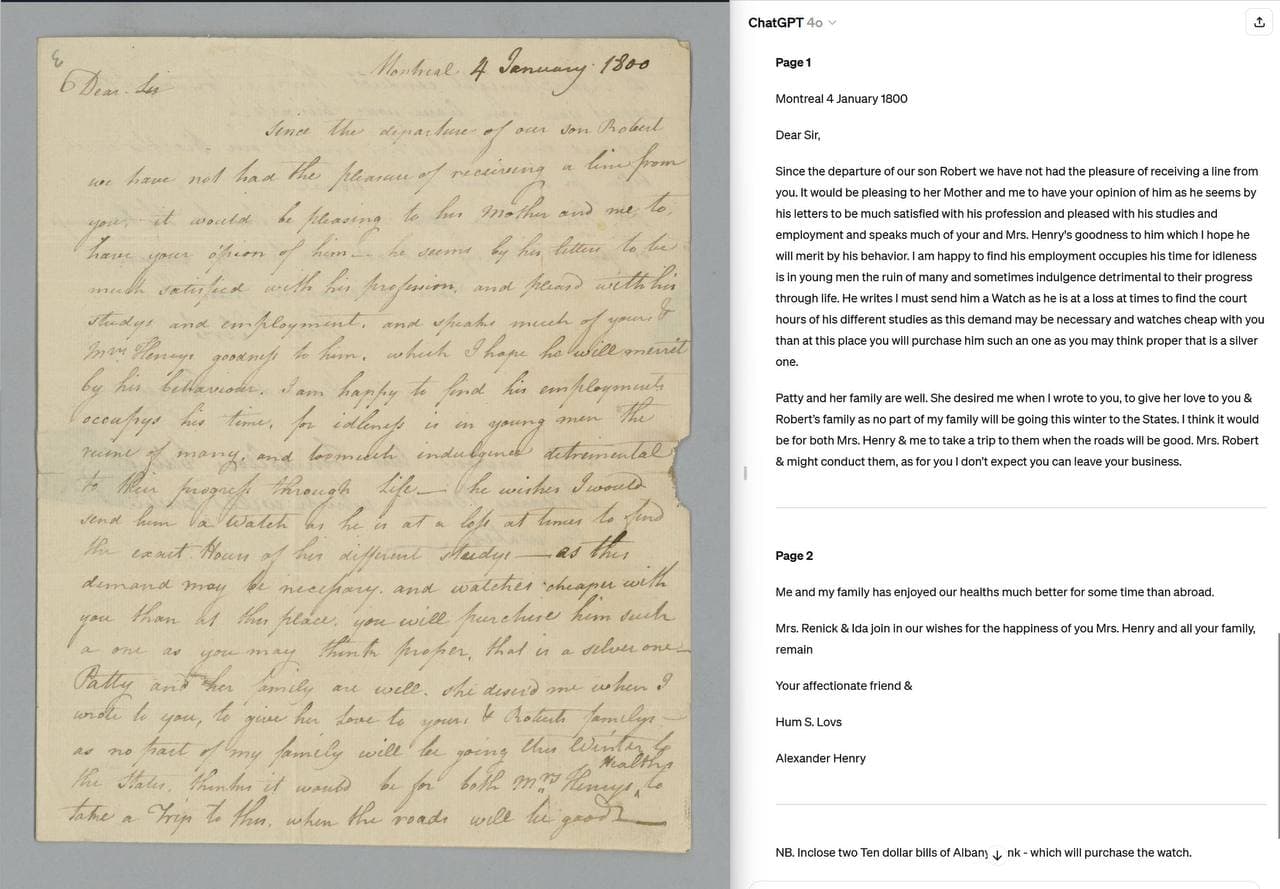 Montreal 4 January 1800
Dear Sir
Since the departure of our son Robert
we have not had the pleasure of receiving a line from
you, it would be pleasing to his Mother and me, to,
have your opion of him — he seems by his letters to be
much satisfied with his profession, and pleasd with his
studys and employment, and speaks much of your &
Mrs Henrys goodness to him, which I hope he will merrit
by his behaviour. I am happy to find his employments
occupys his time, for idleness is in young men the
ruine of many, and toomuch indulgence detremental
to their progress through Life — he wishes I would
send him a Watch as he is at a loss at times to find
the exact Hours of his different studys — as this
demand may be necessary. and watches cheaper with
you than at this place. you will purchase him such
a one as you may think proper, that is a silver one —
Patty and her family are well. she desird me when I
wrote to you, to give her Love to yours & Roberts familys —
as no part of my family will be going this Winter to
the States, thinks it would be for both Mrs Henrys Healths to
take a Trip to this, when the roads will be good —
ChatGPT 4o
Page 1
Montreal 4 January 1800
Dear Sir,
Since the departure of our son Robert we have not had the pleasure of receiving a line from
you. It would be pleasing to her Mother and me to have your opinion of him as he seems by
his letters to be much satisfied with his profession and pleased with his studies and
employment and speaks much of your and Mrs. Henry's goodness to him which I hope he
will merit by his behavior. I am happy to find his employment occupies his time for idleness
is in young men the ruin of many and sometimes indulgence detrimental to their progress
through life. He writes I must send him a Watch as he is at a loss at times to find the court
hours of his different studies as this demand may be necessary and watches cheap with you
than at this place you will purchase him such an one as you may think proper that is a silver
one.
Patty and her family are well. She desired me when I wrote to you, to give her love to you &
Robert's family as no part of my family will be going this winter to the States. I think it would
be for both Mrs. Henry & me to take a trip to them when the roads will be good. Mrs. Robert
& might conduct them, as for you I don't expect you can leave your business.
Page 2
Me and my family has enjoyed our healths much better for some time than abroad.
Mrs. Renick & Ida join in our wishes for the happiness of you Mrs. Henry and all your family,
remain
Your affectionate friend &
Hum S. Lovs
Alexander Henry
NB. Inclose two Ten dollar bills of Albany nk - which will purchase the watch.